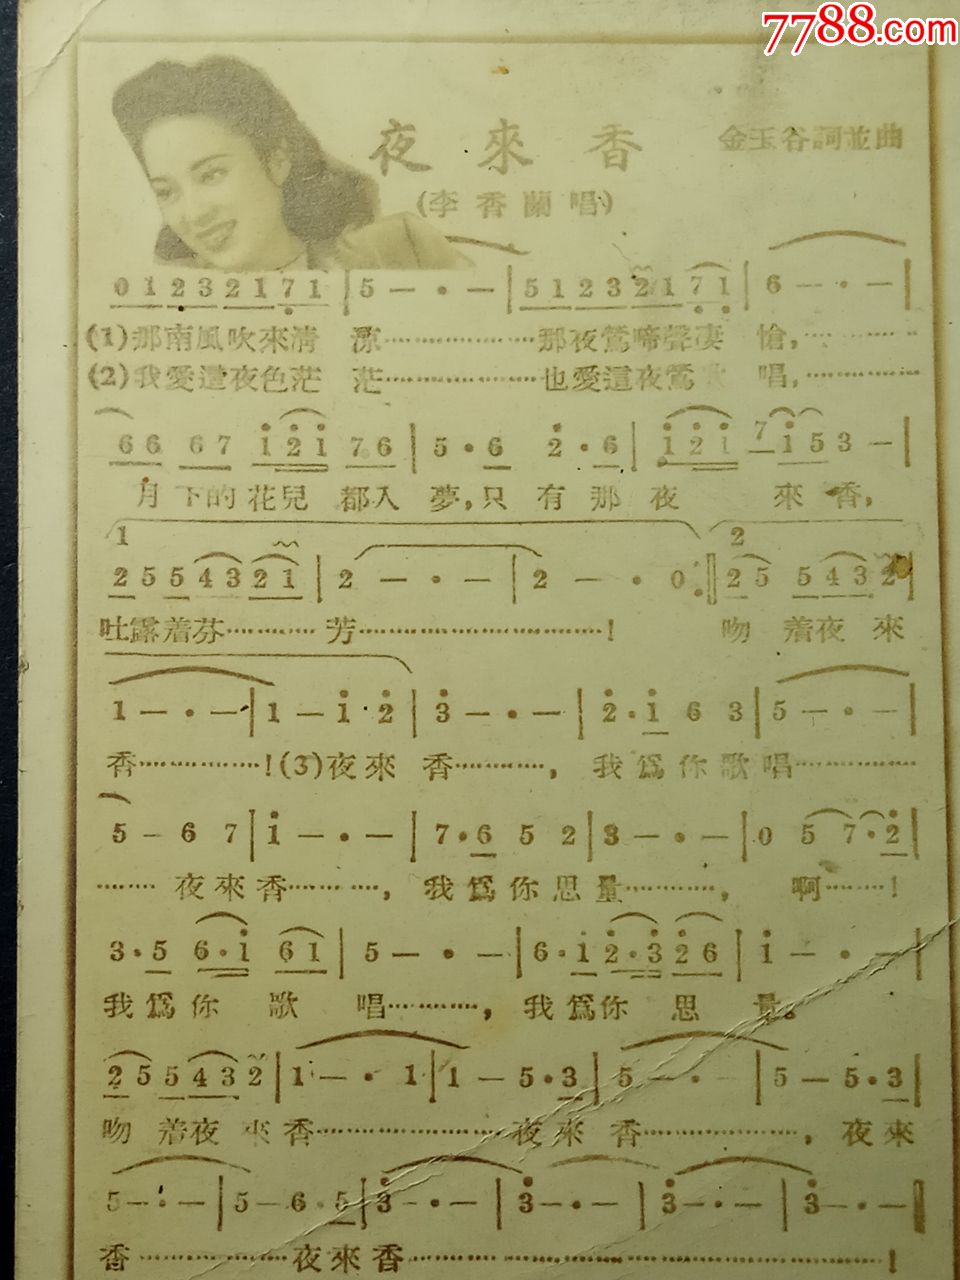 7788.com
夜來香
金玉谷詞並曲
(李香蘭唱)
0 1 2 3 2 1 7 1 | 5 — · — | 5 1 2 3 2 1 7 1 | 6 — · — |
(1)那南風吹來淸 凉⋯⋯⋯⋯⋯那夜鶯啼聲凄 愴,⋯⋯⋯⋯
(2)我愛這夜色茫 茫⋯⋯⋯⋯⋯也愛這夜鶯歌 唱,⋯⋯⋯⋯
6 6 6 7 i 2 i 7 6 | 5 · 6 2 · 6 | i 2 i 7 i 5 3 — |
月下的花兒 都入 夢,只 有 那 夜 來 香,
1 2
2 5 5 4 3 2 1 | 2 — · — | 2 — · 0 :| 2 5 5 4 3 2 |
吐露着芬⋯⋯⋯ 芳⋯⋯⋯⋯⋯⋯⋯⋯! 吻 着夜 來
1 — · — | 1 — i 2 | 3 — · — | 2 · i 6 3 | 5 — · — |
香⋯⋯⋯⋯!(3)夜來 香⋯⋯⋯, 我爲你歌唱⋯⋯⋯⋯
5 — 6 7 | i — · — | 7 · 6 5 2 | 3 — · — | 0 5 7 · 2 |
⋯⋯ 夜來香⋯⋯⋯, 我爲你思量⋯⋯⋯, 啊⋯⋯!
3 · 5 6 · i 6 1 | 5 — · — | 6 · i 2 · 3 2 6 | i — · — |
我爲你 歌 唱⋯⋯⋯, 我爲你 思 量。
2 5 5 4 3 2 | 1 — · 1 | 1 — 5 · 3 | 5 — · — | 5 — 5 · 3 |
吻 着夜 來香⋯⋯⋯⋯⋯⋯夜來 香⋯⋯⋯⋯⋯, 夜來
5 — · — | 5 — 6 · 5 | 3 — · — | 3 — · — | 3 — · — | 3 — · — |
香⋯⋯⋯⋯⋯夜來香⋯⋯⋯⋯⋯⋯⋯⋯⋯⋯⋯⋯⋯⋯⋯!